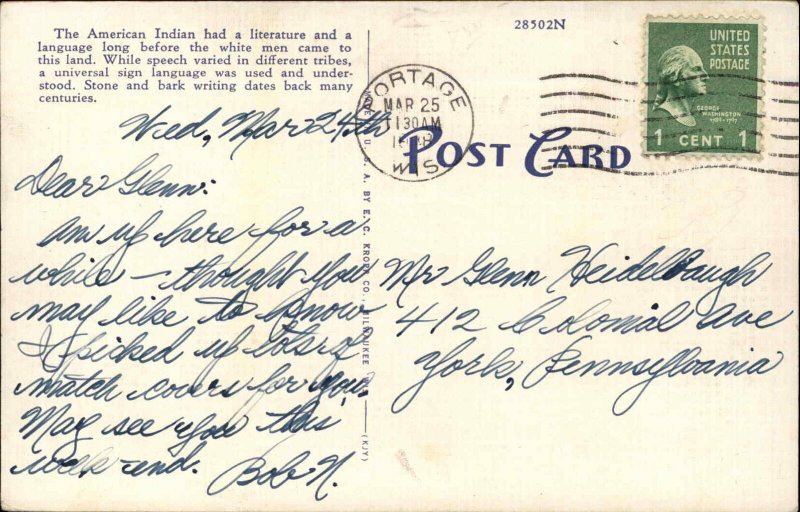 The American Indian had a literature and a
language long before the white men came to
this land. While speech varied in different tribes,
a universal sign language was used and under-
stood. Stone and bark writing dates back many
centuries.
Wed, Mar 24th
Dear Glenn:
Am up here for a
while — thought you
may like to know
I picked up lots of
match covers for you.
May see you this
week-end.
Bob N.
MADE IN U. S. A. BY E. C. KROPP CO., MILWAUKEE, WIS.
(KJY)
28502N
PORTAGE
MAR 25
11 30 AM
WIS.
POST CARD
UNITED
STATES
POSTAGE
GEORGE
WASHINGTON
1789-1797
1 CENT 1
Mr Glenn Heidelbaugh
412 Colonial Ave
York, Pennsylvania